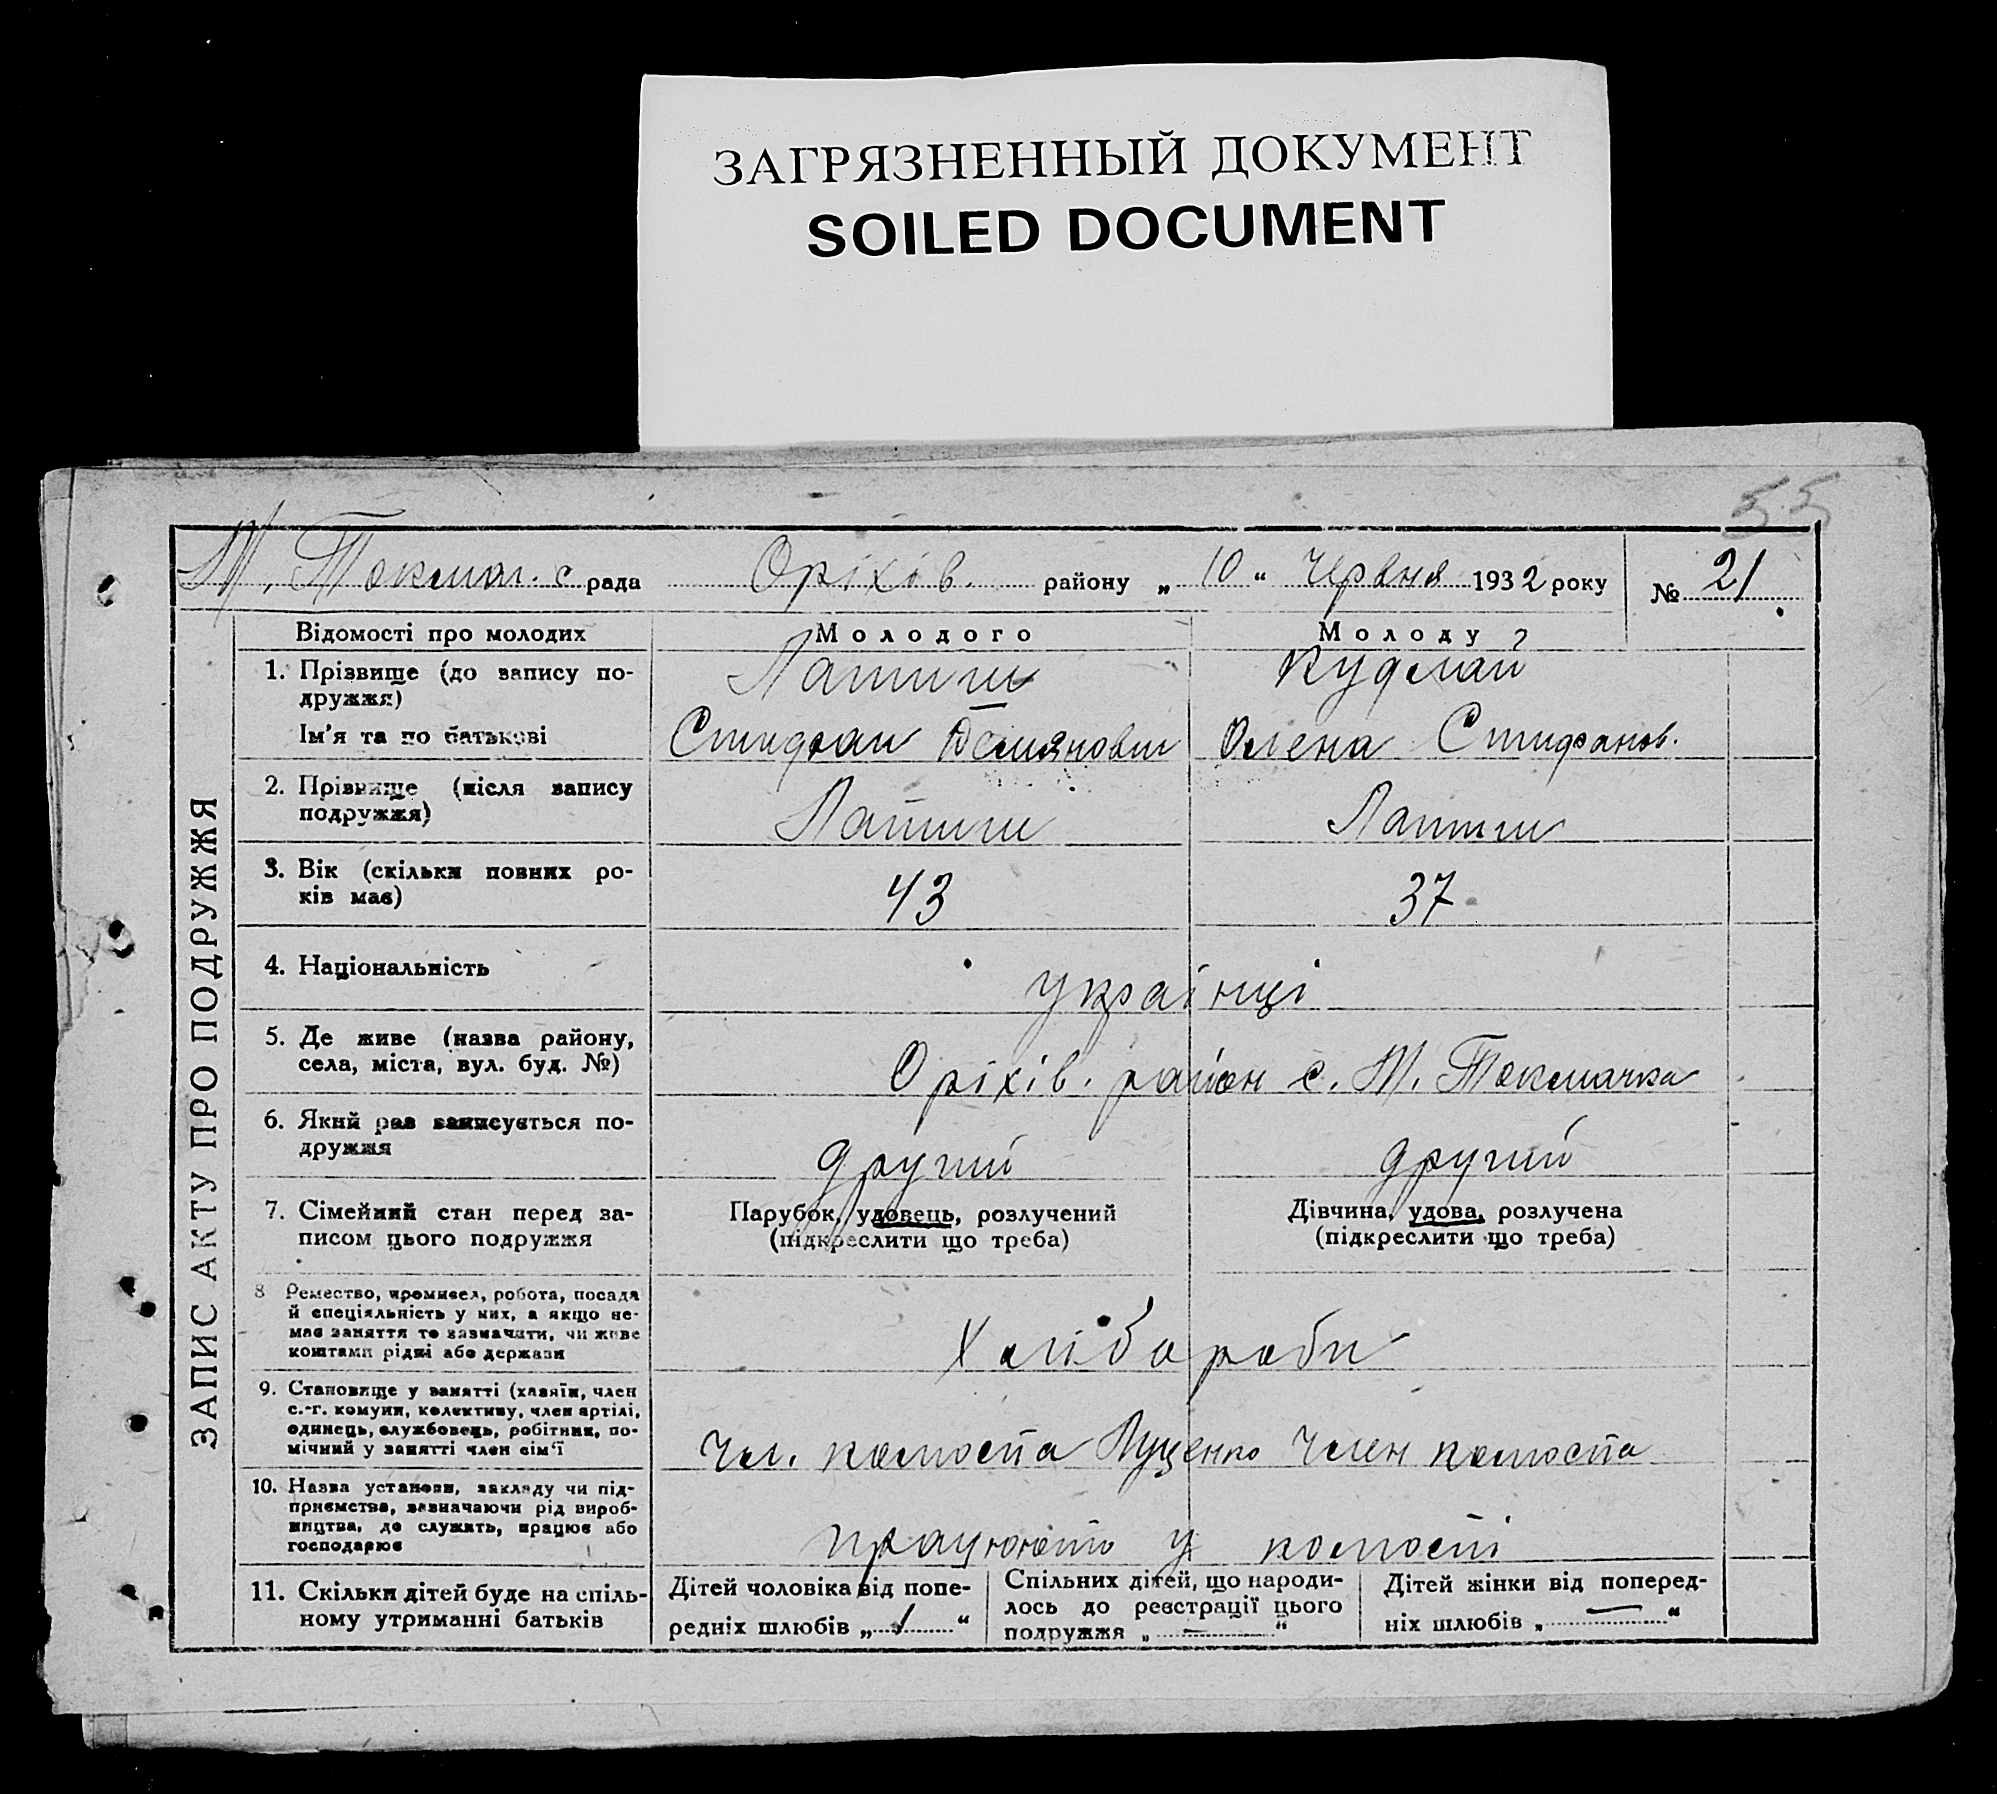 ЗАГРЯЗНЕННЫЙ ДОКУМЕНТ
SOILED DOCUMENT
55
М. Токмач. с рада Оріхів. району „ 10 “ Червня 1932 року № 21
ЗАПИС АКТУ ПРО ПОДРУЖЖЯ
Відомості про молодих Молодого Молоду
1. Прізвище (до запису по- Латиш Кудлай
дружжя)
Ім'я та по батькові Стифан Демянович Олена Стифанов.
2. Прізвище (після запису
подружжя) Латиш Латиш
3. Вік (скільки повних ро-
ків має) 43 37
4. Національність українці
5. Де живе (назва району,
села, міста, вул. буд. №) Оріхів. район с. М. Токмачка
6. Який раз записується по-
дружжя другий другий
7. Сімейний стан перед за- Парубок, удовець, розлучений Дівчина, удова, розлучена
писом цього подружжя (підкреслити що треба) (підкреслити що треба)
8 Ремество, промисел, робота, посада
й спеціяльність у них, а якщо не-
має заняття то зазначити, чи живе
коштами рідні або держави Хлібороби
9. Становище у занятті (хазяїн, член
с.-г. комуни, колективу, член артілі,
одинець, службовець, робітник, по-
мічний у занятті член сім'ї Чл. колоспа Луценко Член колоспа
10. Назва установи, закладу чи під-
приємства, зазначаючи рід вироб-
ництва, де служить, працює або
господарює працюють у колоспі
11. Скільки дітей буде на спіль-
ному утриманні батьків
Дітей чоловіка від попе-
редніх шлюбів „ 1 “
Спільних дітей, що народи-
лось до реєстрації цього
подружжя „ — “
Дітей жінки від поперед-
ніх шлюбів „ — “